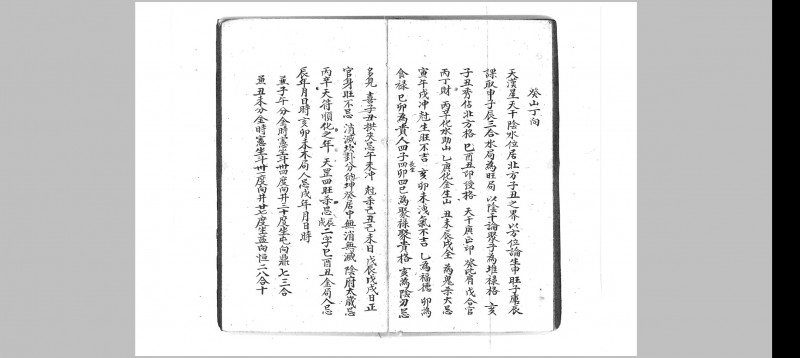 癸山丁向
天漢星天干陰水位居北方子丑之界以方位論生申旺子庫辰
課取申子辰三合水局為旺局 以陰干論聚子為堆祿格 亥
子丑秀佔北方格 巳酉丑印綬格 天干庚辛印 癸比肩戊合官
丙丁財 丙辛化水助山 乙庚化金生山 丑未辰戌全為鬼杀大忌
寅午戌冲尅生旺不吉 亥卯未洩氣不吉 乙為福德 卯為
食祿 巳卯為貴人四子四卯四巳為聚祿聚貴格 亥為陰刃忌
多見 喜子丑拱夾忌午未冲 尅杀己丑己未日 戊辰戊戌日正
官身旺不忌 消滅坎卦分納坤癸居中無消無滅 陰府太歲忌
丙辛天符順化之年 天罡四旺杀忌辰戌二字巳酉丑金局人忌
辰年月日時亥卯未木局人忌戌年月日時
子午分金時憲坐斗廿四度向井三十度坐屯向鼎七三合
丑未分金時憲坐斗廿二度向井廿七度坐益向恒二八合十